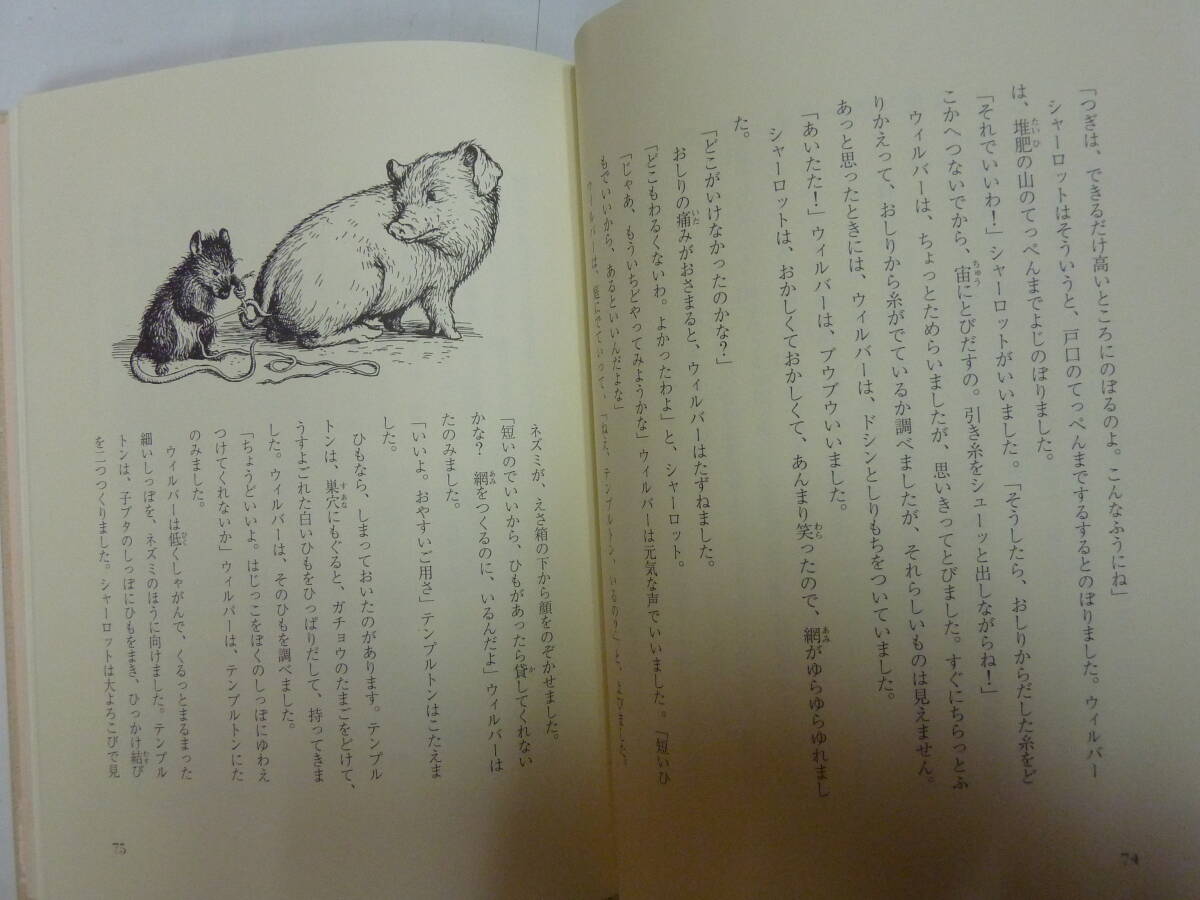 「つぎは、できるだけ高いところにのぼるのよ。こんなふうにね」
シャーロットはそういうと、戸口のてっぺんまでするするとのぼりました。ウィルバー
は、堆肥の山のてっぺんまでよじのぼりました。
「それでいいわ！」シャーロットがいいました。「そうしたら、おしりからだした糸をど
こかへつないでから、宙にとびだすの。引き糸をシューッと出しながらね！」
ウィルバーは、ちょっとためらいましたが、思いきってとびました。すぐにちらっとふ
りかえって、おしりから糸がでているか調べましたが、それらしいものは見えません。
あっと思ったときには、ウィルバーは、ドシンとしりもちをついていました。
「あいたた！」ウィルバーは、ブウブウいいました。
シャーロットは、おかしくておかしくて、あんまり笑ったので、網がゆらゆらゆれまし
た。
「どこがいけなかったのかな？」
おしりの痛みがおさまると、ウィルバーはたずねました。
「どこもわるくないわ。よかったわよ」と、シャーロット。
「じゃあ、もういちどやってみようかな」ウィルバーは元気な声でいいました。「短いひ
もでいいから、あるといいんだよな」
ウィルバーは、庭にでていって、「ねえ、テンプルトン、いるの？」と、よびました。
74
ネズミが、えさ箱の下から顔をのぞかせました。
「短いのでいいから、ひもがあったら貸してくれない
かな？　網をつくるのに、いるんだよ」ウィルバーは
たのみました。
「いいよ。おやすいご用さ」テンプルトンはこたえま
した。
ひもなら、しまっておいたのがあります。テンプル
トンは、巣穴にもぐると、ガチョウのたまごをどけて、
うすよごれた白いひもをひっぱりだして、持ってきま
した。ウィルバーは、そのひもを調べました。
「ちょうどいいよ。はじっこをぼくのしっぽにゆわえ
つけてくれないか」ウィルバーは、テンプルトンにた
のみました。
ウィルバーは低くしゃがんで、くるっとまるまった
細いしっぽを、ネズミのほうに向けました。テンプル
トンは、子ブタのしっぽにひもをまき、ひっかけ結び
を二つつくりました。シャーロットは大よろこびで見
75